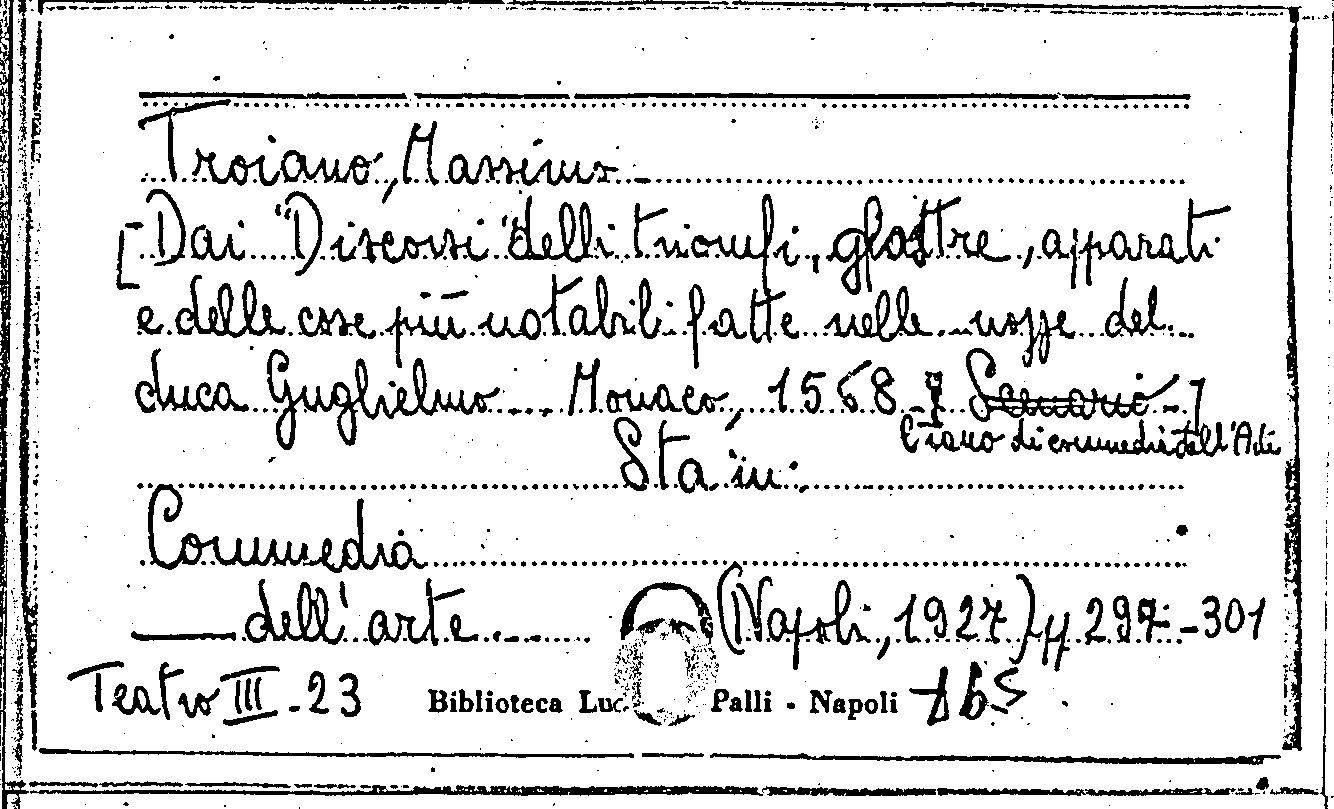 Troiano, Massimo -
[Dai "Discorsi" delli trionfi, giostre, apparati
e delle cose più notabili fatte nelle nozze del
duca Guglielmo... Monaco, 1568 - Scenario -]
di commedia dell'Arte
Sta in:
Commedia
dell'arte.... (Napoli, 1927) pp 297-301
Teatro III - 23 Biblioteca Luc Palli - Napoli